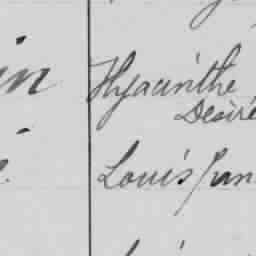 in Hyacinthe
Desiré
Louis Jun